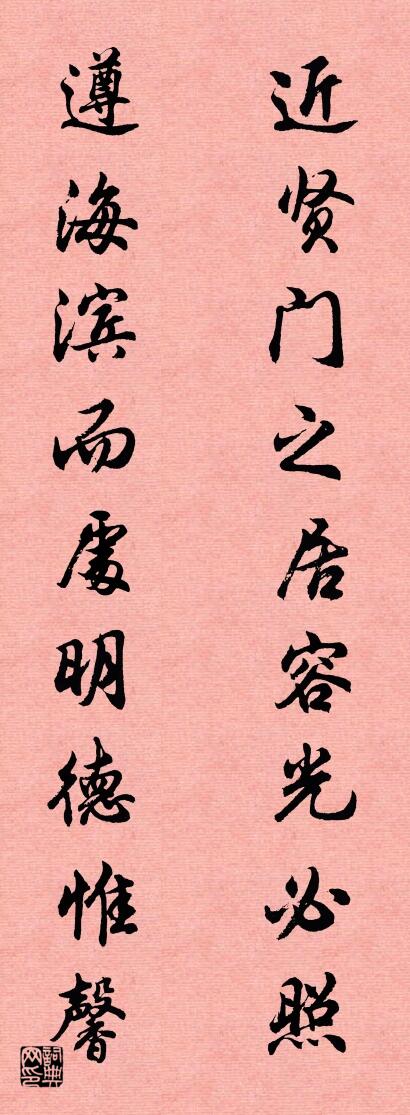 近贤门之居容光必照
遵海滨而處明德惟馨
詞典网印